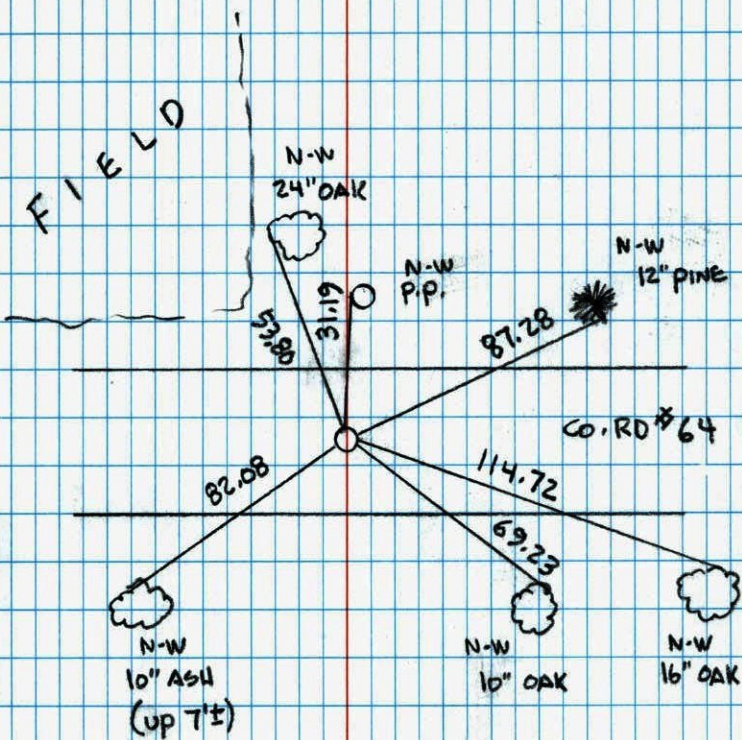 FIELD
N-W
24" OAK
N-W
P.P.
N-W
12" PINE
53.80
31.19
87.28
CO. RD # 64
82.08
114.72
69.23
N-W
10" ASH
(up 7'±)
N-W
10" OAK
N-W
16" OAK